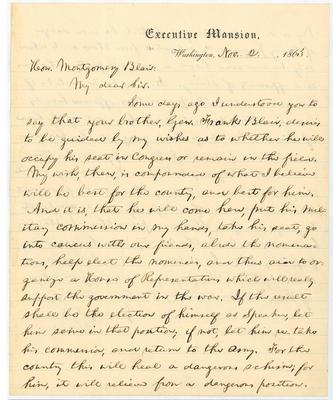 Executive Mansion,
Washington, Nov. 2, 1863
Hon. Montgomery Blair:
My dear Sir.
Some days ago I understood you to
say that your brother, Gen. Frank Blair, desires
to be guided by my wishes as to whether he will
occupy his seat in Congress or remain in the field.
My wish, then, is compounded of what I believe
will be best for the country, and best for him.
And it is, that he will come here, put his mil-
itary commission in my hands, take his seat, go
into caucus with our friends, abide the nomina-
tions, help elect the nominees, and thus aid to or-
ganize a House of Representatives which will really
support the government in the war. If the result
shall be the election of himself as Speaker, let
him serve in that position; if not, let him re-take
his commission, and return to the Army. For the
country this will heal a dangerous schism; for
him, it will relieve from a dangerous position.